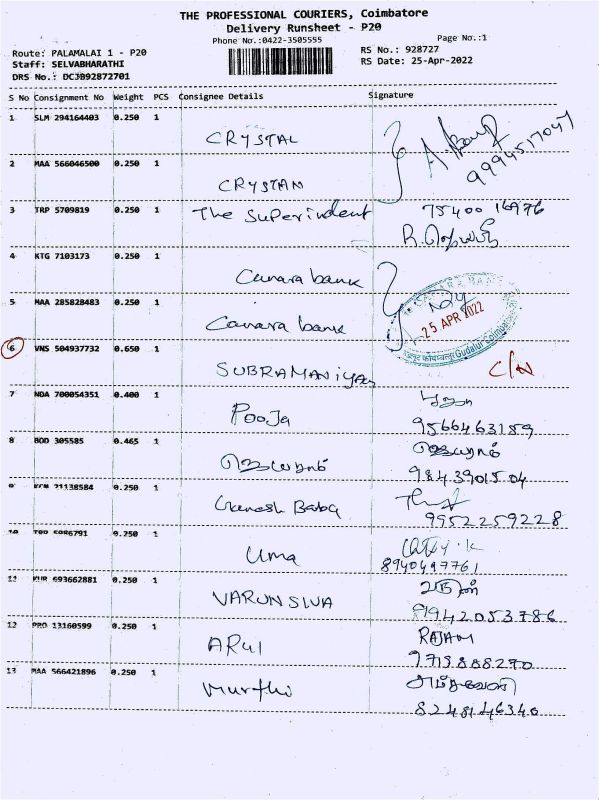 THE PROFESSIONAL COURIERS, Coimbatore
Delivery Runsheet - P20
Phone No.:0422-3505555
Page No.:1
Route: PALAMALAI 1 - P20
RS No.: 928727
Staff: SELVABHARATHI
RS Date: 25-Apr-2022
DRS No.: DC3B92872701
S No Consignment No Weight PCS Consignee Details Signature
1 SLM 294164403 0.250 1
CRYSTAL
9994517047
2 MAA 566046500 0.250 1
CRYSTAN
3 TRP 5709819 0.250 1
The Superindent 75400 16976
4 KTG 7103173 0.250 1
Canara bank
5 MAA 285828483 0.250 1
Canara bank
25 APR 2022
6 VNS 504937732 0.650 1
SUBRAMANIYAN C/N
7 NDA 700054351 0.400 1
Pooja பூஜா
9566463159
8 BOD 305585 0.465 1
ஜெயராம் ஜெயராம்
9843901504
9 21138584 0.250 1
Ganesh Babu
9952259228
10 0.250 1
Uma
8940497761
11 KUR 693662881 0.250 1
VARUNSIVA வருண்
9942053786
12 PRO 13160599 0.250 1
ARUl RAJAM
9715888270
13 MAA 566421896 0.250 1
Murthi
8248146340